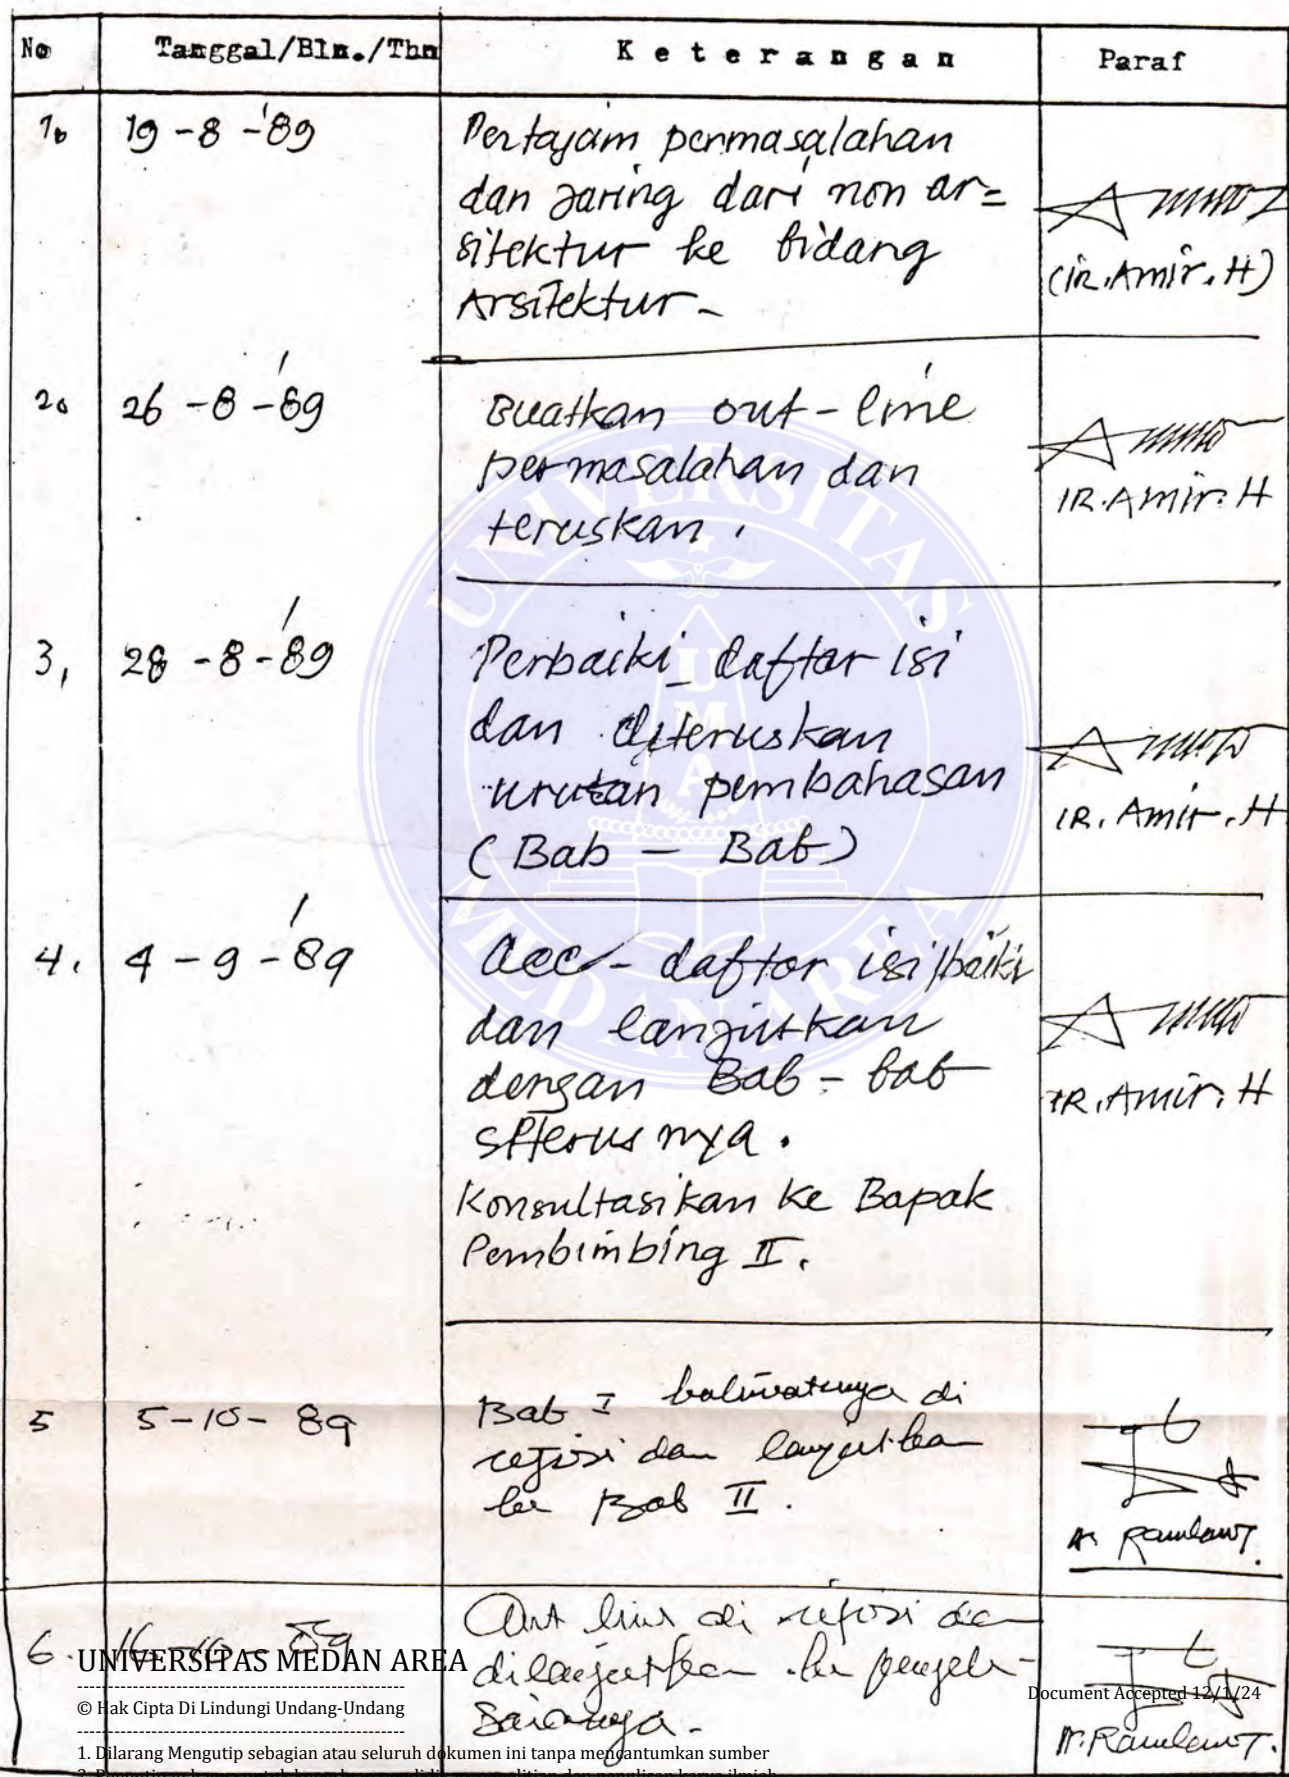 No Tanggal/Bln./Thn Keterangan Paraf
1. 19-8-'89 Pertajam permasalahan
dan jaring dari non ar=
sitektur ke bidang
Arsitektur-
(IR.Amir.H)
2. 26-8-'89 Buatkan out-line
permasalahan dan
teruskan.
IR.Amir.H
3, 28-8-'89 Perbaiki daftar isi
dan diteruskan
urutan pembahasan
(Bab - Bab)
IR. Amir.H
4. 4-9-'89 acc- daftar isi/baiki
dan lanjutkan
dengan Bab-bab
seterusnya.
IR.Amir.H
Konsultasikan ke Bapak
Pembimbing II.
5 5-10-89 Bab I di
refisi dan lanjutkan
ke Bab II.
6. 16-10-89 Out line di refisi dan
dilanjutkan ke
UNIVERSITAS MEDAN AREA
© Hak Cipta Di Lindungi Undang-Undang
Document Accepted 12/1/24
1. Dilarang Mengutip sebagian atau seluruh dokumen ini tanpa mencantumkan sumber
UNIVERSITAS
UMA
MEDAN AREA